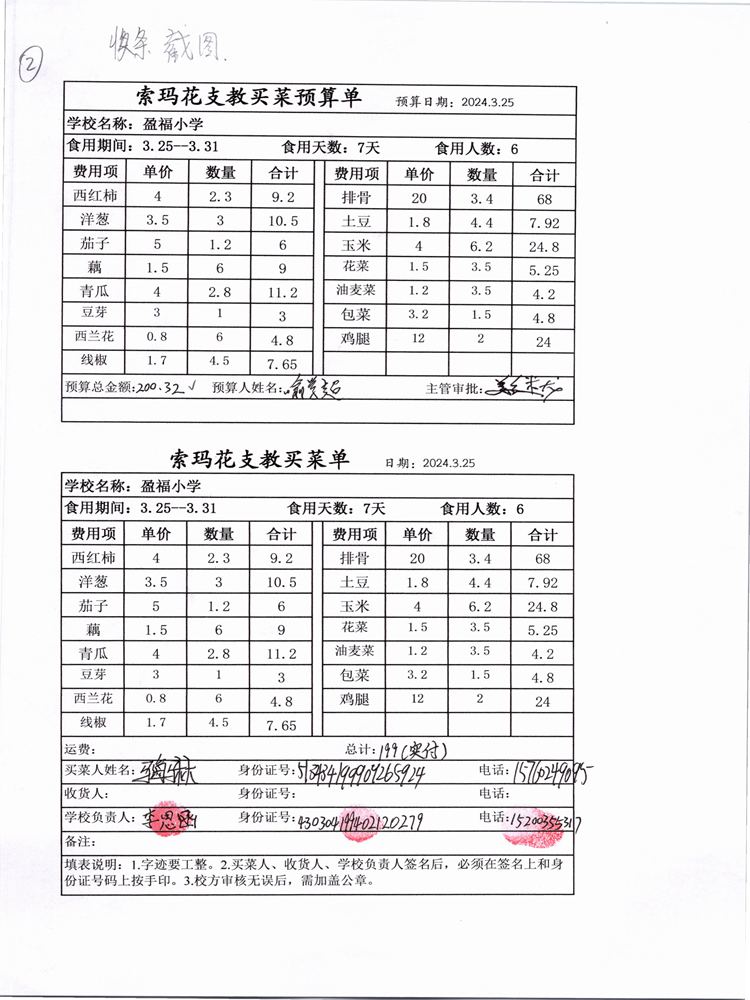 收条 截图.
②
索玛花支教买菜预算单 预算日期：2024.3.25
学校名称：盈福小学
食用期间：3.25--3.31 食用天数：7天 食用人数：6
费用项 单价 数量 合计 费用项 单价 数量 合计
西红柿 4 2.3 9.2 排骨 20 3.4 68
洋葱 3.5 3 10.5 土豆 1.8 4.4 7.92
茄子 5 1.2 6 玉米 4 6.2 24.8
藕 1.5 6 9 花菜 1.5 3.5 5.25
青瓜 4 2.8 11.2 油麦菜 1.2 3.5 4.2
豆芽 3 1 3 包菜 3.2 1.5 4.8
西兰花 0.8 6 4.8 鸡腿 12 2 24
线椒 1.7 4.5 7.65
预算总金额：200.32√ 预算人姓名： 主管审批：
索玛花支教买菜单 日期：2024.3.25
学校名称：盈福小学
食用期间：3.25--3.31 食用天数：7天 食用人数：6
费用项 单价 数量 合计 费用项 单价 数量 合计
西红柿 4 2.3 9.2 排骨 20 3.4 68
洋葱 3.5 3 10.5 土豆 1.8 4.4 7.92
茄子 5 1.2 6 玉米 4 6.2 24.8
藕 1.5 6 9 花菜 1.5 3.5 5.25
青瓜 4 2.8 11.2 油麦菜 1.2 3.5 4.2
豆芽 3 1 3 包菜 3.2 1.5 4.8
西兰花 0.8 6 4.8 鸡腿 12 2 24
线椒 1.7 4.5 7.65
运费： 总计：199(实付)
买菜人姓名： 身份证号：513434199909265924 电话：15760249095
收货人： 身份证号： 电话：
学校负责人：李思 身份证号：430304199402120279 电话：15200355317
备注：
填表说明：1.字迹要工整。2.买菜人、收货人、学校负责人签名后，必须在签名上和身
份证号码上按手印。3.校方审核无误后，需加盖公章。